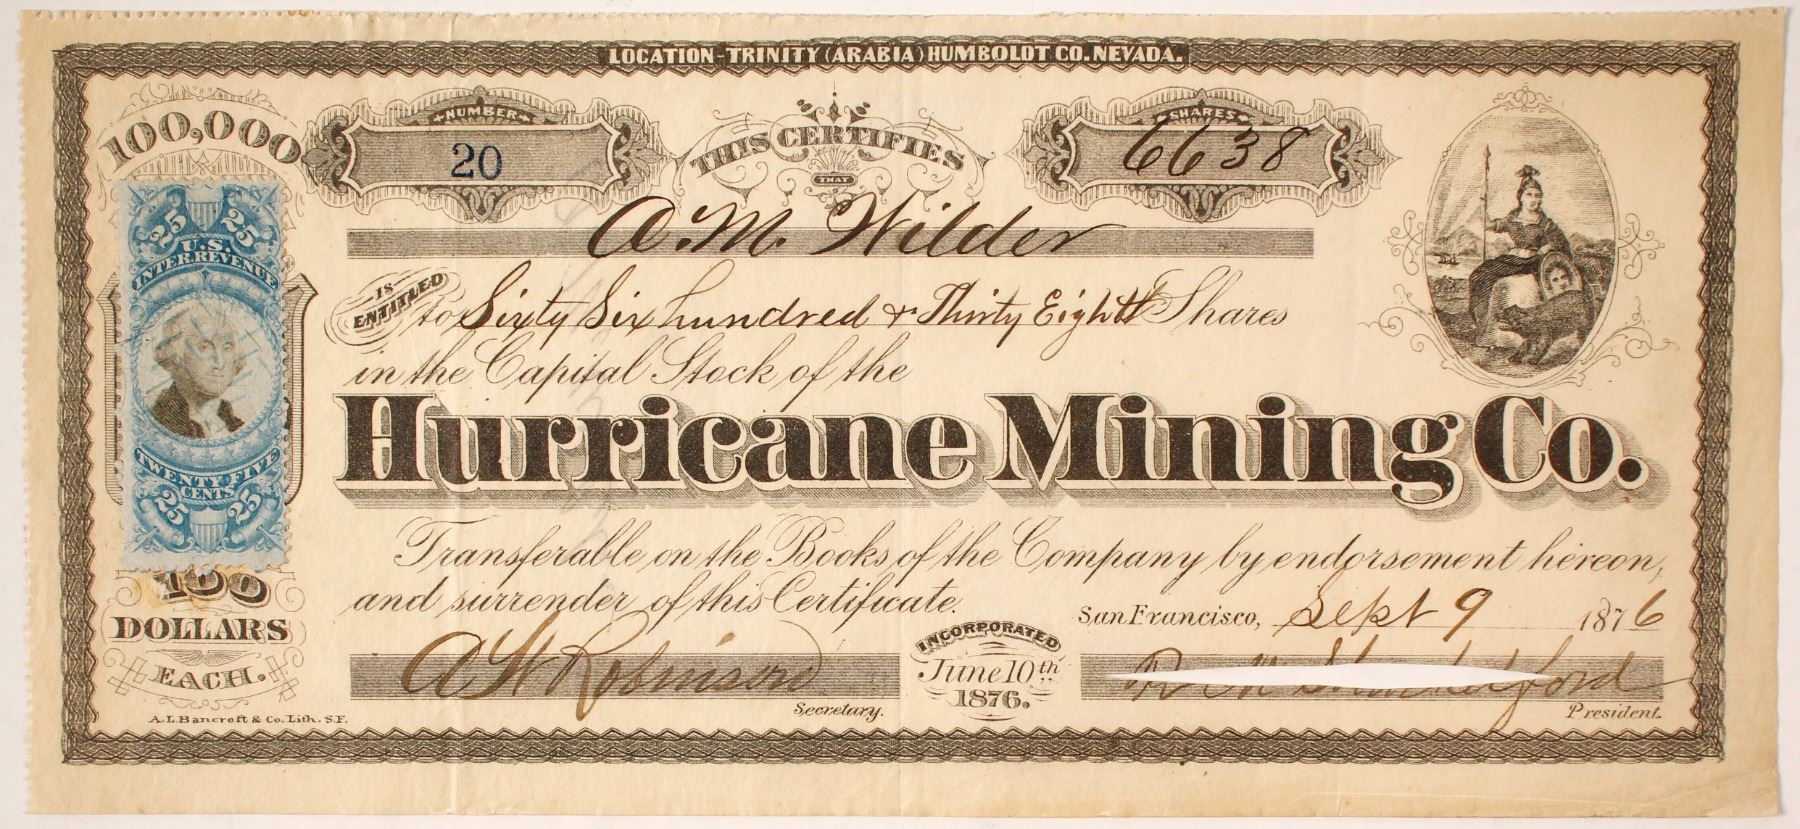 LOCATION-TRINITY (ARABIA) HUMBOLDT CO. NEVADA.
NUMBER
20
THIS CERTIFIES
THAT
SHARES
6638
A. M. Wilder
IS ENTITLED to Sixty Six hundred & Thirty Eight Shares
in the Capital Stock of the
Hurricane Mining Co.
Transferable on the Books of the Company by endorsement hereon,
and surrender of this Certificate.
San Francisco, Sept 9 1876
INCORPORATED
June 10th
1876.
Robinson
Secretary.
President.
100,000
25 25
U.S.
INTER. REVENUE
TWENTY FIVE
CENTS
25 25
100
DOLLARS
EACH.
A.L. Bancroft & Co. Lith. S.F.